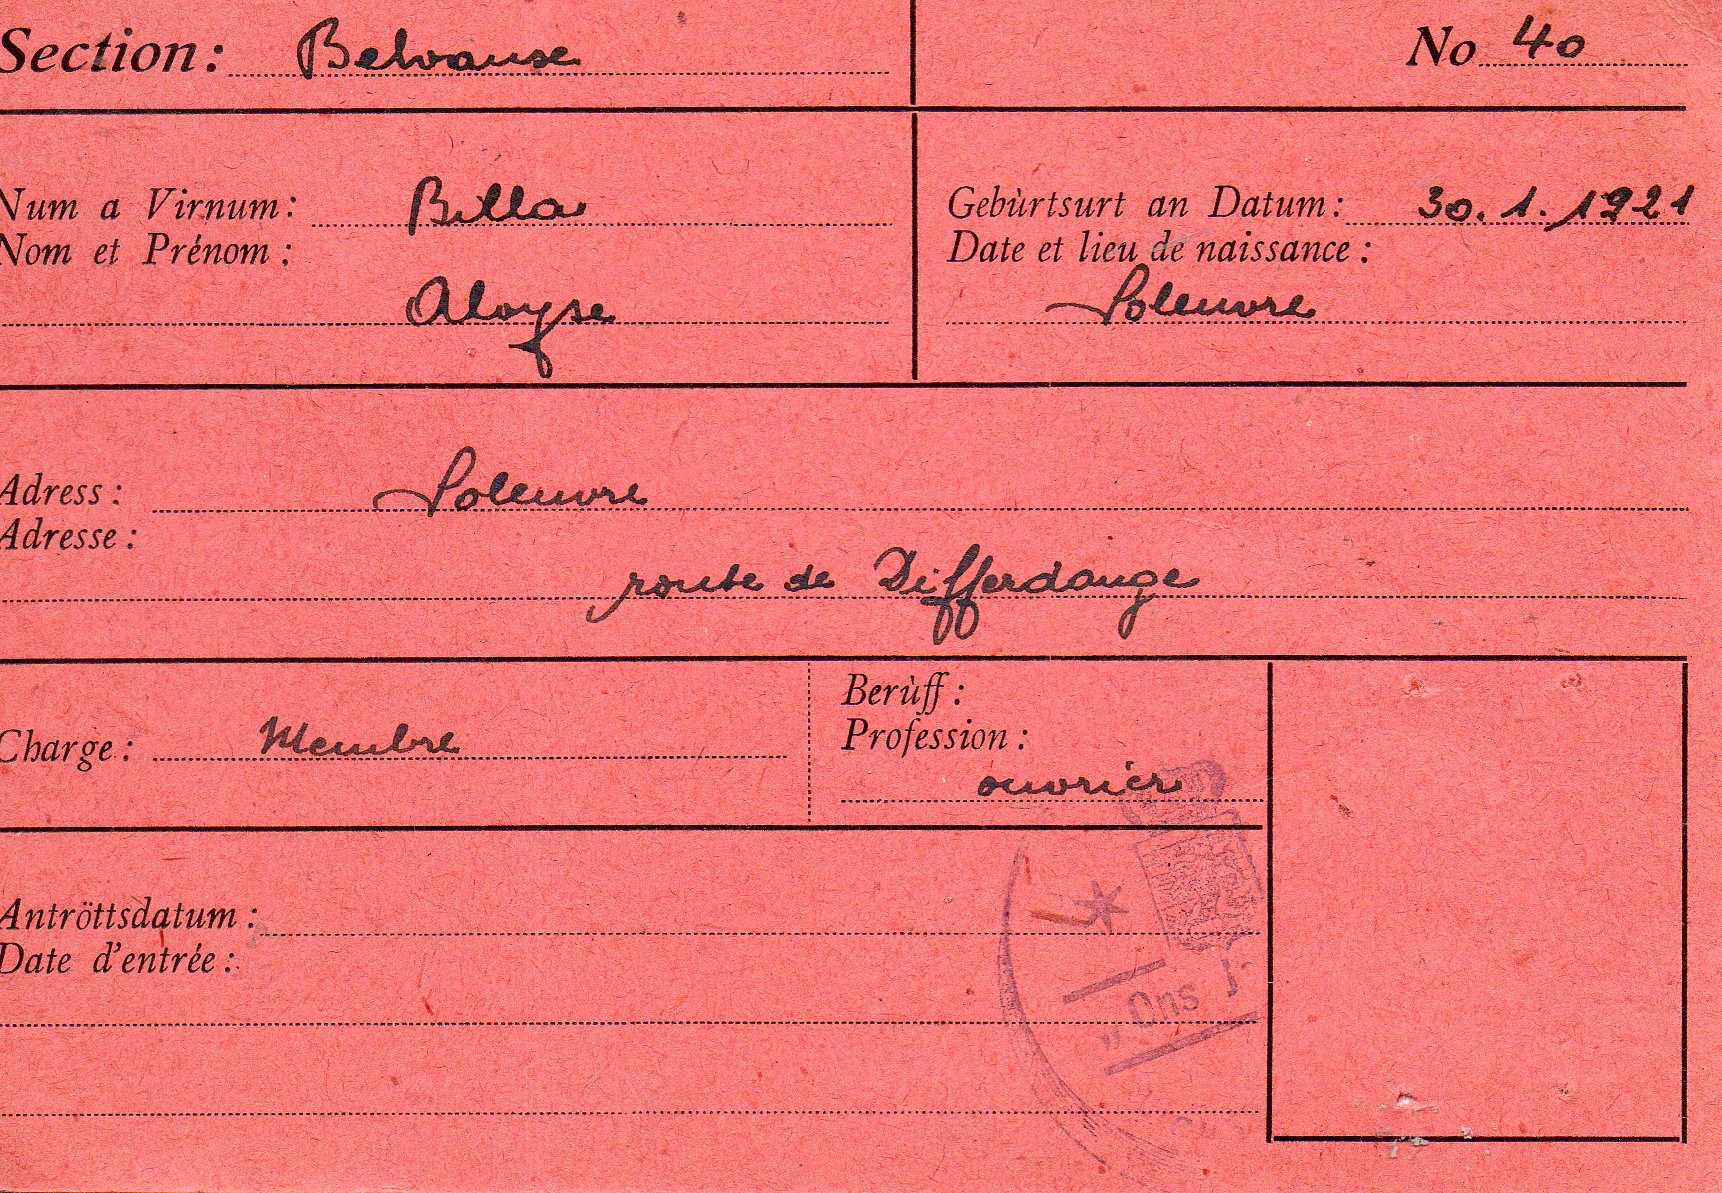 Section: Belvause No 40
Num a Virnum: Billa
Nom et Prénom:
Aloyse
Gebùrtsurt an Datum: 30.1.1921
Date et lieu de naissance:
Soleuvre
Adress: Soleuvre
Adresse:
route de Differdange
Charge: Membre
Berùff:
Profession:
ouvrier
Antröttsdatum:
Date d'entrée:
"Ons